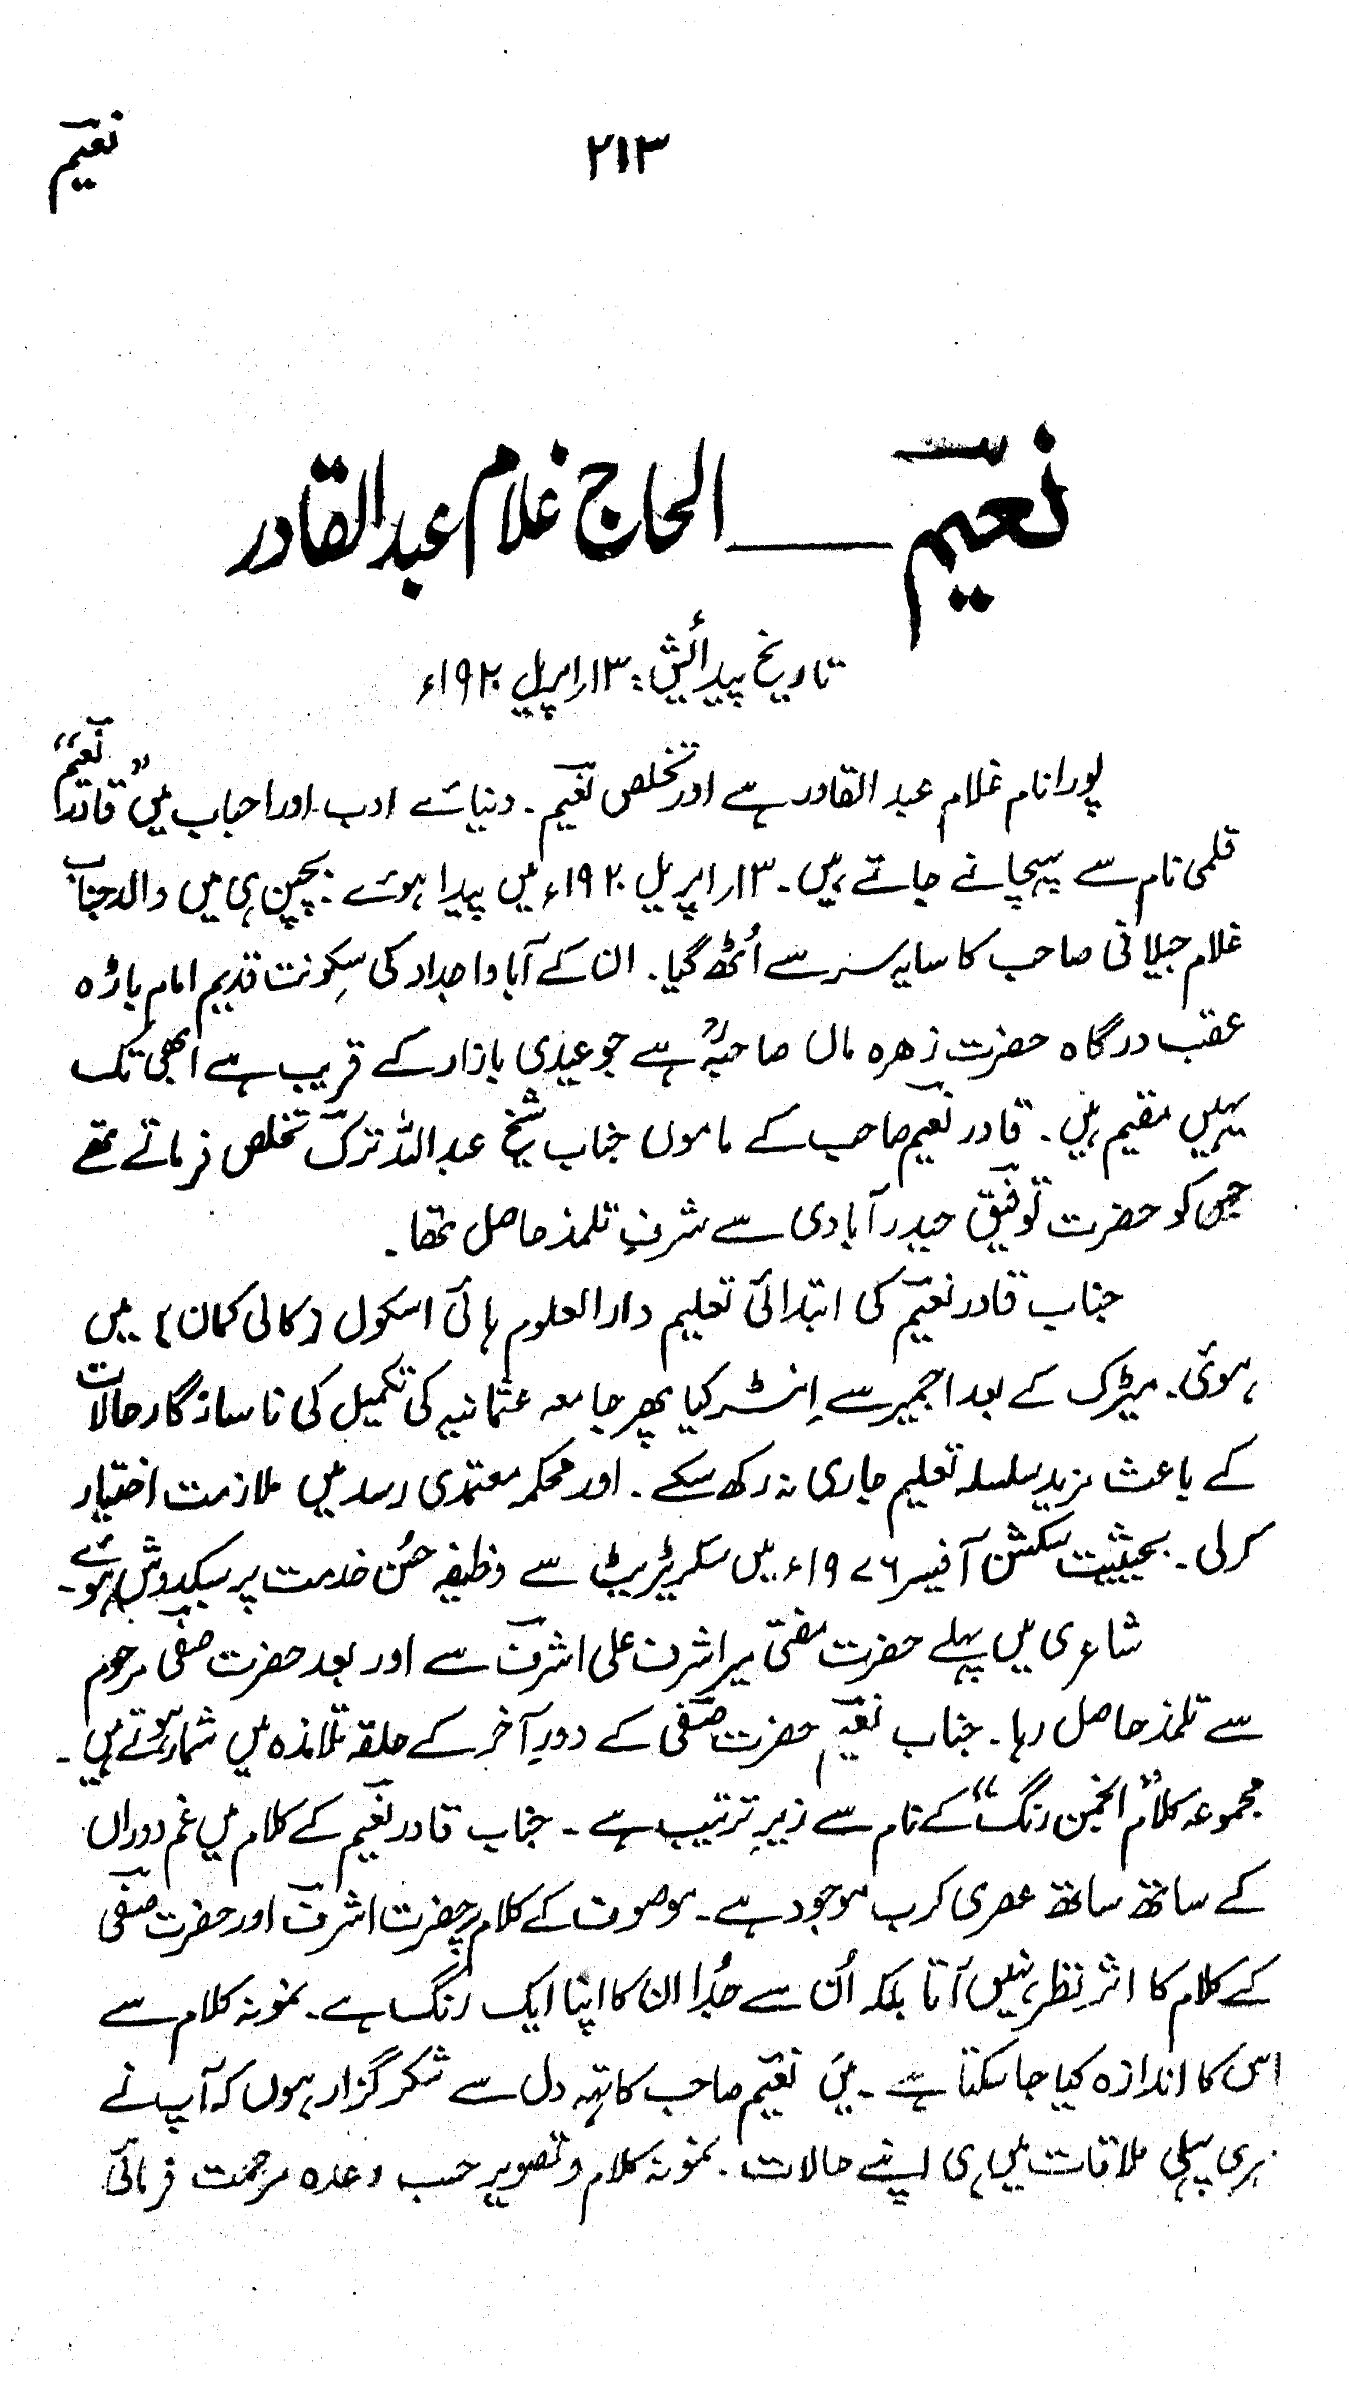 نعیم
۲۱۳
نعیم ــــ الحاج غلام عبدالقادر
تاریخ پیدائش: ۱۳؍اپریل ۱۹۲۰ء
پورا نام غلام عبد القادر ہے اور تخلص نعیم۔ دنیائے ادب اور احباب میں "قادر نعیم"
قلمی نام سے پہچانے جاتے ہیں۔ ۱۳؍اپریل ۱۹۲۰ء میں پیدا ہوئے۔ بچپن ہی میں والد جناب
غلام جیلانی صاحب کا سایہ سر سے اُٹھ گیا۔ ان کے آبا و اجداد کی سکونت قدیم امام باڑہ
عقب درگاہ حضرت زھرہ ماں صاحبہؒ ہے جو عیدی بازار کے قریب ہے ابھی تک
یہیں مقیم ہیں۔ قادر نعیم صاحب کے ماموں جناب شیخ عبداللہ ترک تخلص فرماتے تھے
جس کو حضرت توفیق حیدرآبادی سے شرفِ تلمذ حاصل تھا۔
جناب قادر نعیم کی ابتدائی تعلیم دارالعلوم ہائی اسکول (کالی کمان) میں
ہوئی۔ میٹرک کے بعد اجمیر سے اِنٹر کیا پھر جامعہ عثمانیہ کی تکمیل کی ناسازگار حالات
کے باعث مزید سلسلہ تعلیم جاری نہ رکھ سکے۔ اور محکمہ معتمدی رسد میں ملازمت اختیار
کرلی۔ بحیثیت سکشن آفیسر ۱۹۷۶ء میں سکریٹریٹ سے وظیفہ حسُن خدمت پر سبکدوش ہوئے۔
شاعری میں پہلے حضرت مفتی میر اشرف علی اشرف سے اور بعد حضرت صفی مرحوم
سے تلمذ حاصل رہا۔ جناب نعیم حضرت صفی کے دورِ آخر کے حلقہ تلامذہ میں شمار ہوتے ہیں۔
مجموعہ کلام "انجمن رنگ" کے نام سے زیرِ ترتیب ہے۔ جناب قادر نعیم کے کلام میں غم دوراں
کے ساتھ ساتھ عصری کرب موجود ہے۔ موصوف کے کلام پر حضرت اشرف اور حضرت صفی
کے کلام کا اثر نظر نہیں آتا بلکہ اُن سے جُدا ان کا اپنا ایک رنگ ہے۔ نمونہ کلام سے
اس کا اندازہ کیا جا سکتا ہے۔ میں نعیم صاحب کا تہہ دل سے شکر گزار ہوں کہ آپ نے
میری پہلی ملاقات میں ہی اپنے حالات۔ نمونہ کلام و تصویر حسب وعدہ مرحمت فرمائی